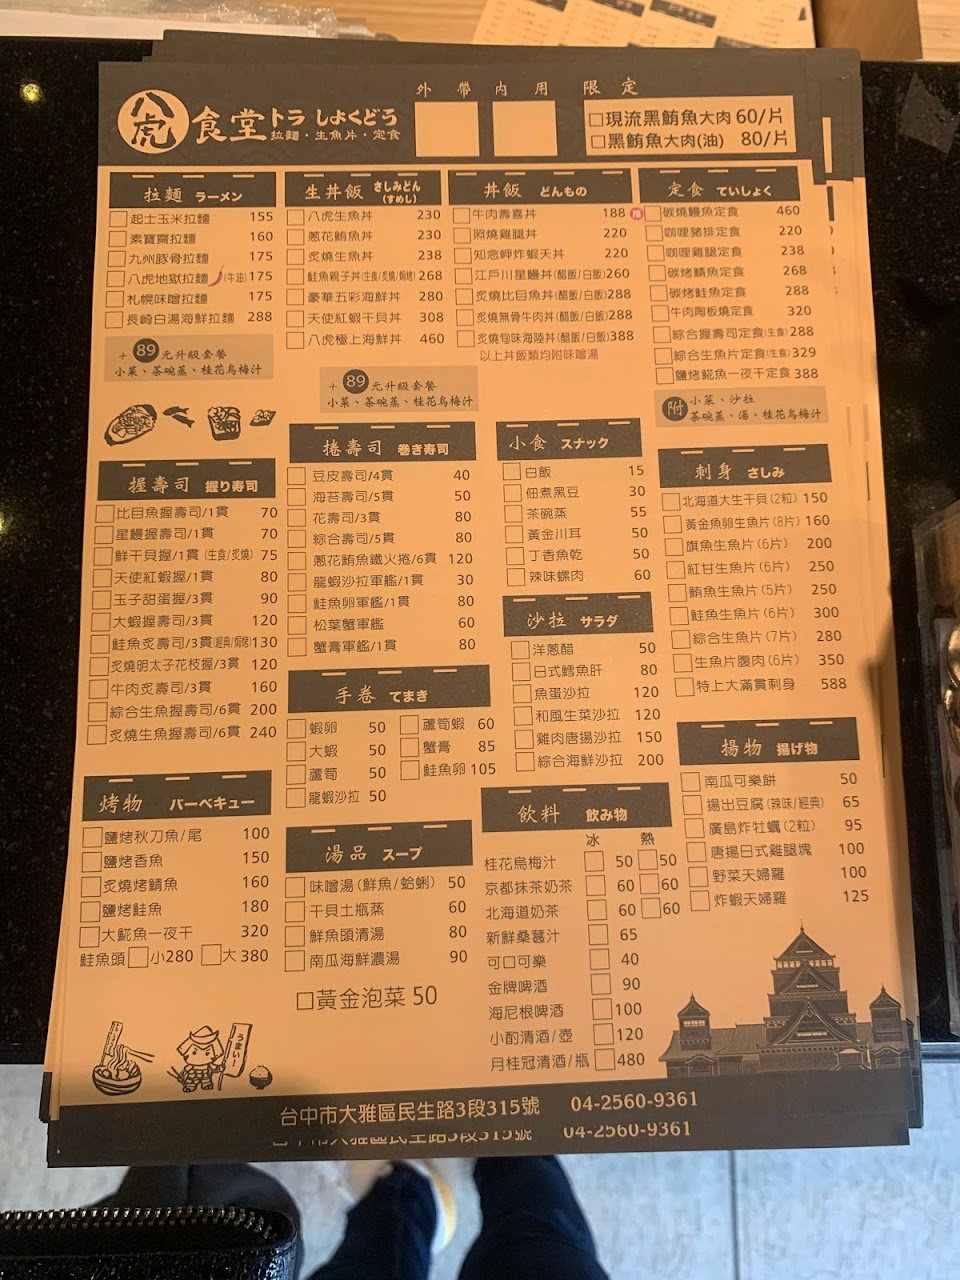 外帶 內用 限定
八虎 食堂 トラ しよくどう
拉麵・生魚片・定食
□現流黑鮪魚大肉 60/片
□黑鮪魚大肉(油) 80/片
拉麵 ラーメン
起士玉米拉麵 155
素寶齋拉麵 160
九州豚骨拉麵 175
八虎地獄拉麵(牛油) 175
札幌味噌拉麵 175
長崎白湯海鮮拉麵 288
+89元升級套餐
小菜、茶碗蒸、桂花烏梅汁
生丼飯 さしみどん(すめし)
八虎生魚丼 230
蔥花鮪魚丼 230
炙燒生魚丼 238
鮭魚親子丼(生食/炙燒/焗烤) 268
豪華五彩海鮮丼 280
天使紅蝦干貝丼 308
八虎極上海鮮丼 460
+89元升級套餐
小菜、茶碗蒸、桂花烏梅汁
丼飯 どんもの
牛肉壽喜丼 188
照燒雞腿丼 220
知念岬炸蝦天丼 220
江戶川星鰻丼(醋飯/白飯) 260
炙燒比目魚丼(醋飯/白飯) 288
炙燒無骨牛肉丼(醋飯/白飯) 288
炙燒旬味海陸丼(醋飯/白飯) 388
以上丼飯類均附味噌湯
定食 ていしょく
推 碳燒鰻魚定食 460
咖哩豬排定食 220
咖哩雞腿定食 238
碳烤鯖魚定食 268
碳烤鮭魚定食 288
牛肉陶板燒定食 320
綜合握壽司定食(生食) 288
綜合生魚片定食(生食) 329
鹽烤魷魚一夜干定食 388
附 小菜、沙拉
茶碗蒸、湯、桂花烏梅汁
握壽司 握り寿司
比目魚握壽司/1貫 70
星鰻握壽司/1貫 70
鮮干貝握/1貫(生食/炙燒) 75
天使紅蝦握/1貫 80
玉子甜蛋握/3貫 90
大蝦握壽司/3貫 120
鮭魚炙壽司/3貫(經典/焗烤) 130
炙燒明太子花枝握/3貫 120
牛肉炙壽司/3貫 160
綜合生魚握壽司/6貫 200
炙燒生魚握壽司/6貫 240
捲壽司 巻き寿司
豆皮壽司/4貫 40
海苔壽司/5貫 50
花壽司/3貫 80
綜合壽司/5貫 80
蔥花鮪魚鐵火捲/6貫 120
龍蝦沙拉軍艦/1貫 30
鮭魚卵軍艦/1貫 80
松葉蟹軍艦 60
蟹膏軍艦/1貫 80
小食 スナック
白飯 15
佃煮黑豆 30
茶碗蒸 55
黃金川耳 50
丁香魚乾 50
辣味螺肉 60
刺身 さしみ
北海道大生干貝(2粒) 150
黃金魚卵生魚片(8片) 160
旗魚生魚片(6片) 200
紅甘生魚片(6片) 250
鮪魚生魚片(5片) 250
鮭魚生魚片(6片) 300
綜合生魚片(7片) 280
生魚片腹肉(6片) 350
特上大滿貫刺身 588
沙拉 サラダ
洋蔥醋 50
日式鱈魚肝 80
魚蛋沙拉 120
和風生菜沙拉 120
雞肉唐揚沙拉 150
綜合海鮮沙拉 200
手卷 てまき
蝦卵 50
大蝦 50
蘆筍 50
龍蝦沙拉 50
蘆筍蝦 60
蟹膏 85
鮭魚卵 105
揚物 揚げ物
南瓜可樂餅 50
揚出豆腐(辣味/經典) 65
廣島炸牡蠣(2粒) 95
唐揚日式雞腿塊 100
野菜天婦羅 100
炸蝦天婦羅 125
烤物 バーベキュー
鹽烤秋刀魚/尾 100
鹽烤香魚 150
炙燒烤鯖魚 160
鹽烤鮭魚 180
大魷魚一夜干 320
鮭魚頭 □小280 □大380
湯品 スープ
味噌湯(鮮魚/蛤蜊) 50
干貝土瓶蒸 60
鮮魚頭清湯 80
南瓜海鮮濃湯 90
□黃金泡菜 50
飲料 飲み物
冰 熱
桂花烏梅汁 50 50
京都抹茶奶茶 60 60
北海道奶茶 60 60
新鮮桑葚汁 65
可口可樂 40
金牌啤酒 90
海尼根啤酒 100
小酌清酒/壺 120
月桂冠清酒/瓶 480
うまい!
台中市大雅區民生路3段315號 04-2560-9361
台中市大雅區民生路3段315號 04-2560-9361